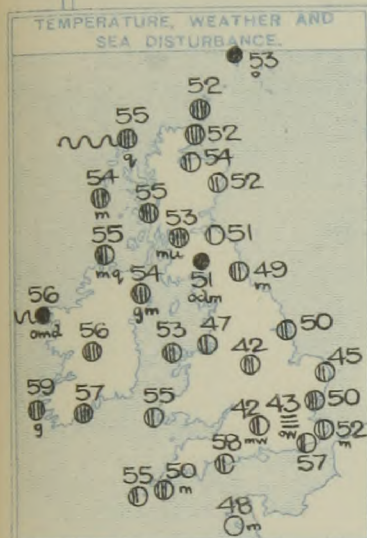 TEMPERATURE, WEATHER AND
SEA DISTURBANCE.
53
o
52
55
q
52
54
52
54
m
55
53
mu
51
55
mq
51
odm
49
m
54
gm
56
omd
56
53
47
50
42
45
59
g
57
55
42
mw
43
ow
50
52
m
58
57
55
50
m
48
m